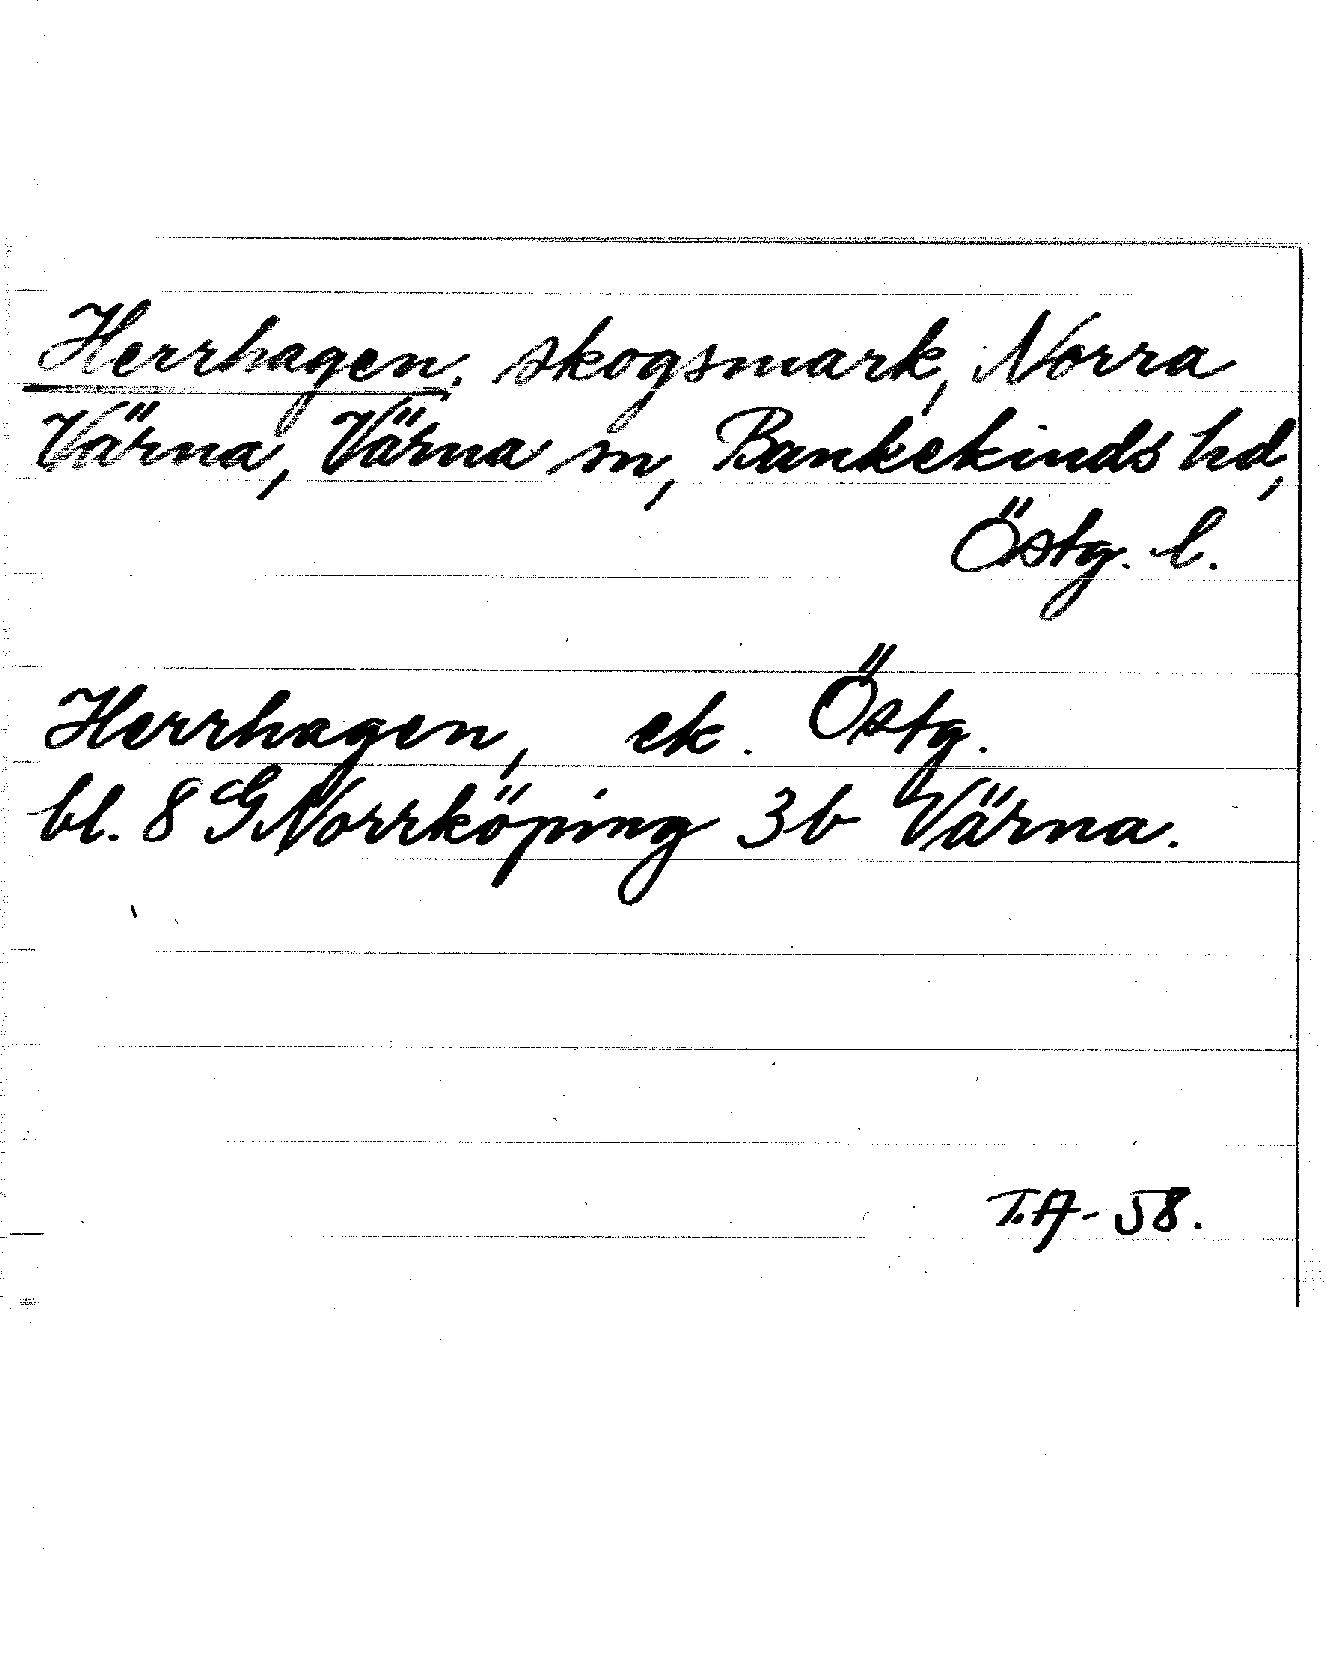 Herrhagen, skogsmark, Norra
Värna, Värna sn, Bankekinds hd,
Östg. l.
Herrhagen, ek. Östg.
bl. 8 G Norrköping 3b Värna.
T.A-58.